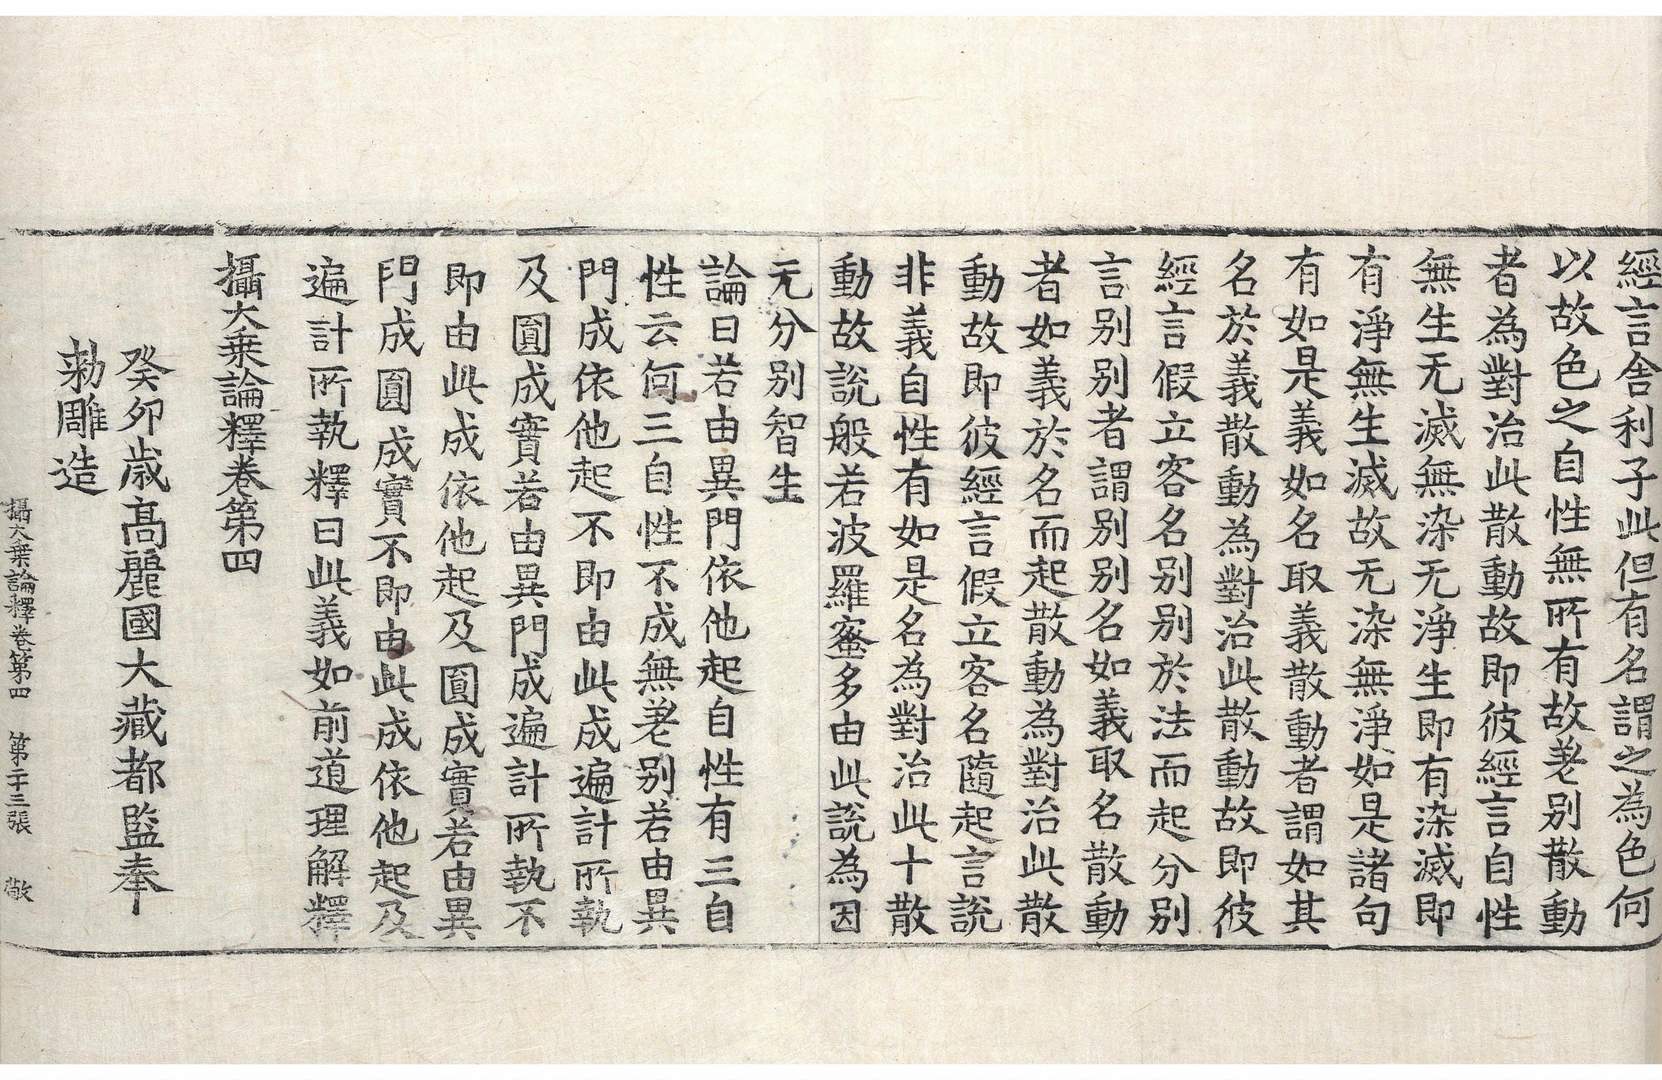 經言舍利子此但有名謂之為色何
以故色之自性無所有故差別散動
者為對治此散動故即彼經言自性
無生无滅無染无淨生即有染滅即
有淨無生滅故无染無淨如是諸句
有如是義如名取義散動者謂如其
名於義散動為對治此散動故即彼
經言假立客名別別於法而起分別
言別別者謂別別名如義取名散動
者如義於名而起散動為對治此散
動故即彼經言假立客名隨起言說
非義自性有如是名為對治此十散
動故說般若波羅蜜多由此說為因
无分別智生
論曰若由異門依他起自性有三自
性云何三自性不成無差別若由異
門成依他起不即由此成遍計所執
及圓成實若由異門成遍計所執不
即由此成依他起及圓成實若由異
門成圓成實不即由此成依他起及
遍計所執釋曰此義如前道理解釋
攝大乗論釋卷第四
癸卯歲高麗國大藏都監奉
勅雕造
攝大乗論釋卷第四 第二十三張 敞